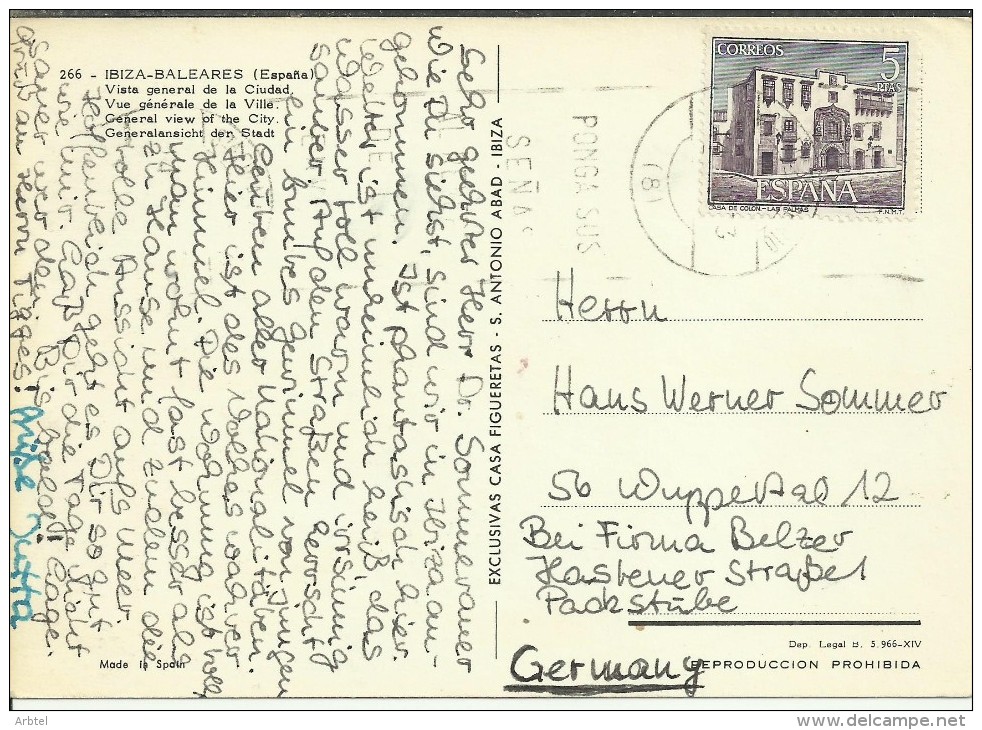 266 - IBIZA-BALEARES (España)
Vista general de la Ciudad.
Vue générale de la Ville.
General view of the City.
Generalansicht der Stadt
Sehr geehrter Herr Dr. Sommeramer
Wie Du siehst, sind wir in Ibiza an-
gekommen. Ist phantastisch hier.
Wetter ist unheimlich heiß, das
Wasser toll warm und irrsinnig
sauber. Auf den Straßen herrscht
ein buntes Gewimmel von Jungen
Leuten aller Nationalitäten.
Hier ist des Volkes wahrer
Himmel. Die Wohnung ist toll,
man wohnt fast besser als
zu Hause und zudem die
tolle Aussicht aufs Meer.
Hoffentlich geht es Dir so gut
wie mir. Laß Dir die Tage nicht
sauer werden. Bis bald
Grüß an Herrn Tigges!
Grüße Jutta
Made in Spain
EXCLUSIVAS CASA FIGUERETAS - S. ANTONIO ABAD - IBIZA
PONGA SUS
SEÑA
CORREOS
5
PTAS
ESPAÑA
CASA DE COLON-LAS PALMAS
F.N.M.T.
Herrn
Hans Werner Sommer
56 Wuppertal 12
Bei Firma Belzer
Hastener Straße 1
Packstube
Germany
Dep. Legal B. 5.966-XIV
REPRODUCCION PROHIBIDA
Arbtel
www.delcampe.net